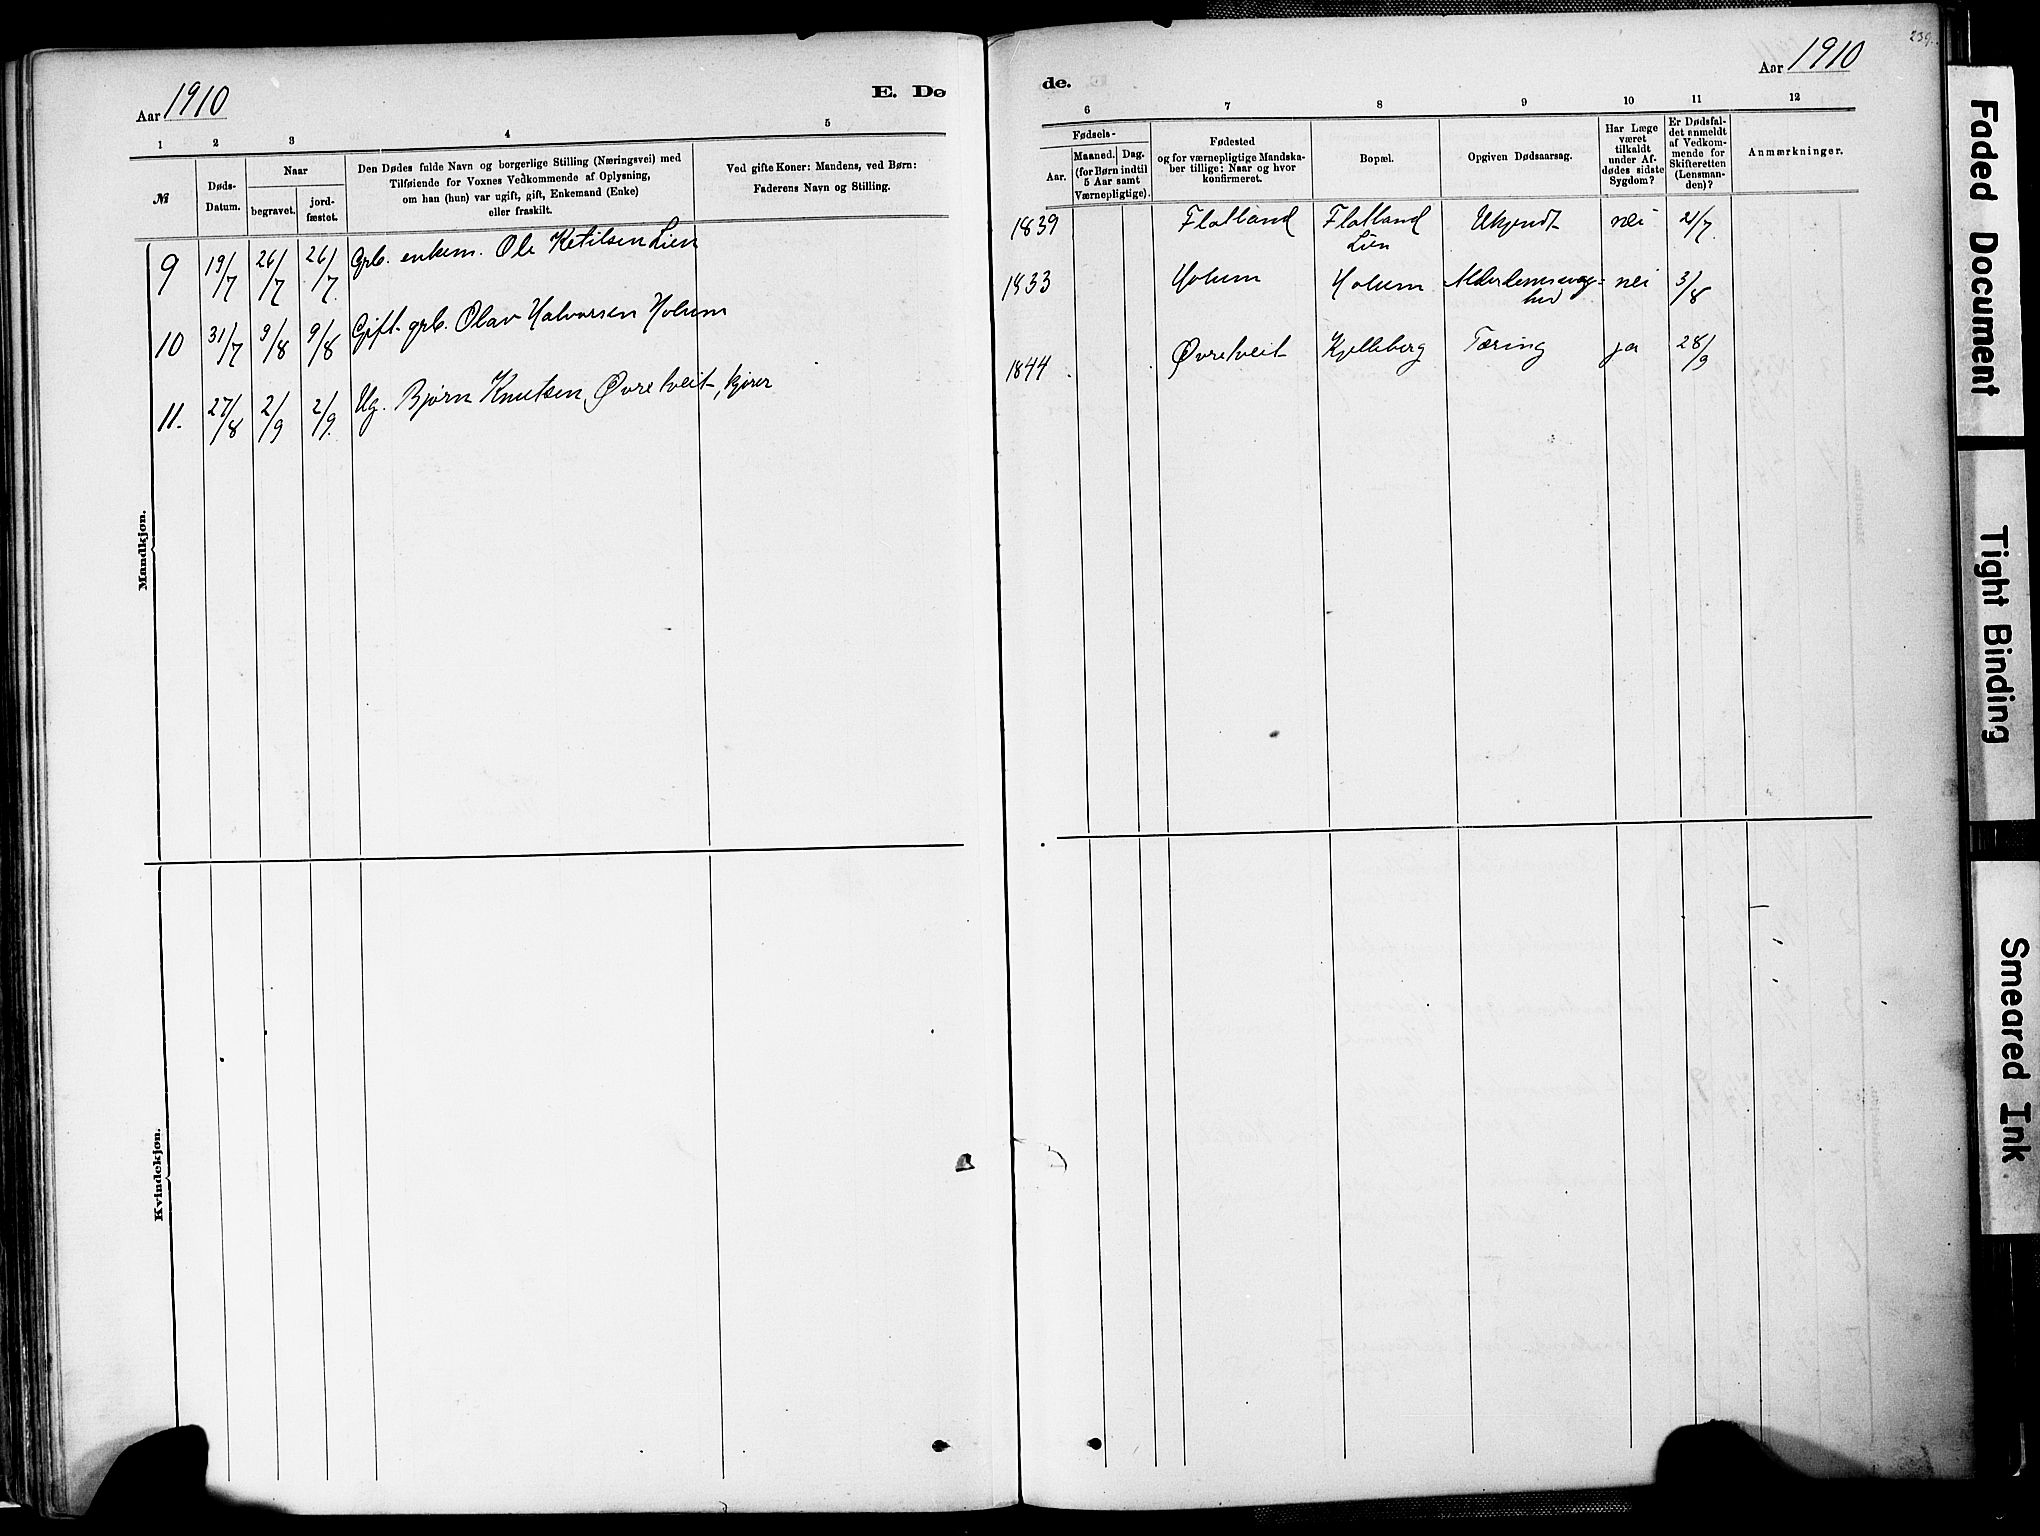 Aar 1910
E. Dø
1 2 3 4 5
№
Døds-
Datum.
Naar
begravet.
jord-
fæstet.
Den Dødes fulde Navn og borgerlige Stilling (Næringsvei) med
Tilføiende for Voxnes Vedkommende af Oplysning,
om han (hun) var ugift, gift, Enkemand (Enke)
eller fraskilt.
Ved gifte Koner: Mandens, ved Børn:
Faderens Navn og Stilling.
9 19/7 26/7 26/7. Gplb. enkem. Ole Ketilsen Lien
10 31/7 9/8 9/8 Gift. gplb. Olav Halvorsen Holum
11. 27/8 2/9 2/9. Ug. Bjørn Knutsen Øvretveit,
Mandkjøn.
Kvindekjøn.
de.
Aar 1910
239.
6 7 8 9 10 11 12
Fødsels-
Aar.
Maaned. Dag.
(for Børn indtil
5 Aar samt
Værnepligtige).
Fødested
og for værnepligtige Mandska-
ber tillige: Naar og hvor
konfirmeret.
Bopæl.
Opgiven Dødsaarsag.
Har Læge
været
tilkaldt
under Af-
dødes sidste
Sygdom?
Er Dødsfal-
det anmeldt
af Vedkom-
mende for
Skifteretten
(Lensman-
den)?
Anmærkninger.
1839 Flatland Flatland Ukjendt nei 21/7.
Lien
1833 Holum Holum Alderdomssvag- nei 3/8
hed
1844 Øvretveit Kjelleberg Tæring ja 28/9
Faded Document
Tight Binding
Smeared Ink